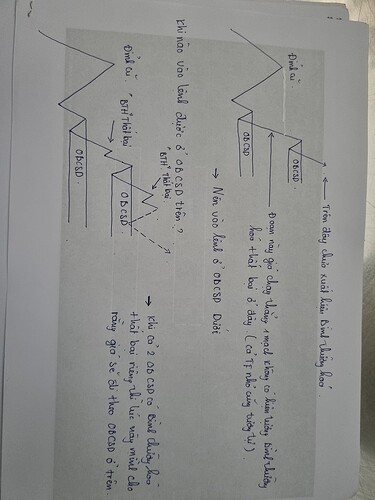 Trên đây chưa xuất hiện Bình thường hoá.
Đỉnh cũ
OBCSD
OBCSD
Đoạn này giá chạy thẳng 1 mạch không có hiện tượng bình thường
hoá + thất bại ở đây (cả TF nhỏ cũng tương tự).
→ Nên vào lệnh ở OBCSD Dưới
Khi nào vào lệnh được ở OBCSD trên?
Đỉnh cũ
"BTH" Thất bại
"BTH" Thất bại
OBCSD
OBCSD
→ Khi cả 2 OBCSD có Bình thường hoá
thất bại riêng thì lúc này mình cho
rằng giá sẽ đi theo OBCSD ở trên.